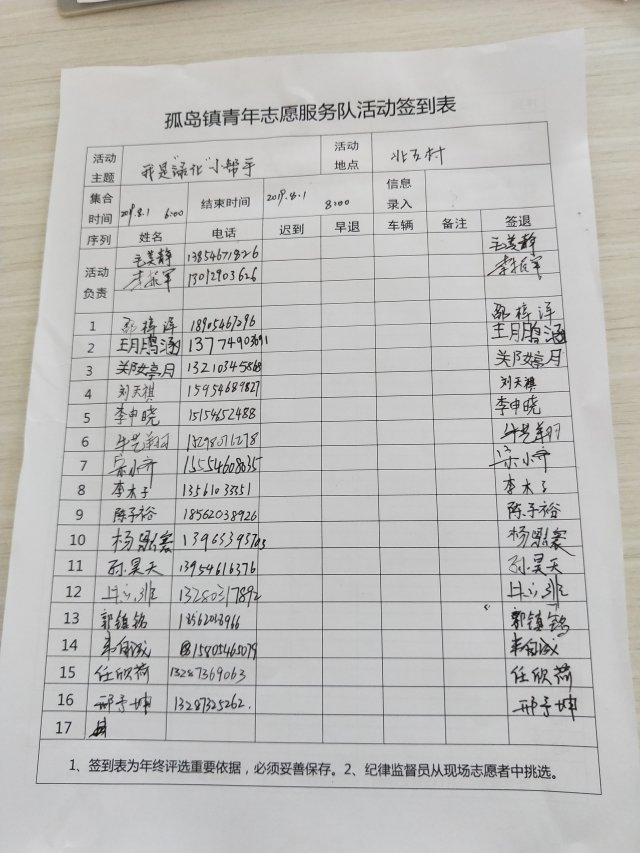 孤岛镇青年志愿服务队活动签到表
活动主题 我是"绿化"小帮手 活动地点 北五村
集合时间 2019.8.1 6:00 结束时间 2019.8.1 8:00 信息录入
序列 姓名 电话 迟到 早退 车辆 备注 签退
活动负责 毛美静 13854671826 毛美静
李振军 13012903626 李振军
1 18905467296
2 王月鹏涵 王月鹏涵
3 郑婷月 郑婷月
4 刘天祺 15954689827 刘天祺
5 李申晓 15154652488 李申晓
6 牛艺翔 牛艺翔
7 宋小齐 15554608035 宋小齐
8 李木子 李木子
9 陈子裕 18562038926 陈子裕
10 杨 杨
11 孙昊天 13954616376 孙昊天
12 13280317892
13 郭镇铭 郭镇铭
14 15805465079
15 任欣荷 13287369063 任欣荷
16 邢予坤 13287325262. 邢予坤
17
1、签到表为年终评选重要依据，必须妥善保存。2、纪律监督员从现场志愿者中挑选。